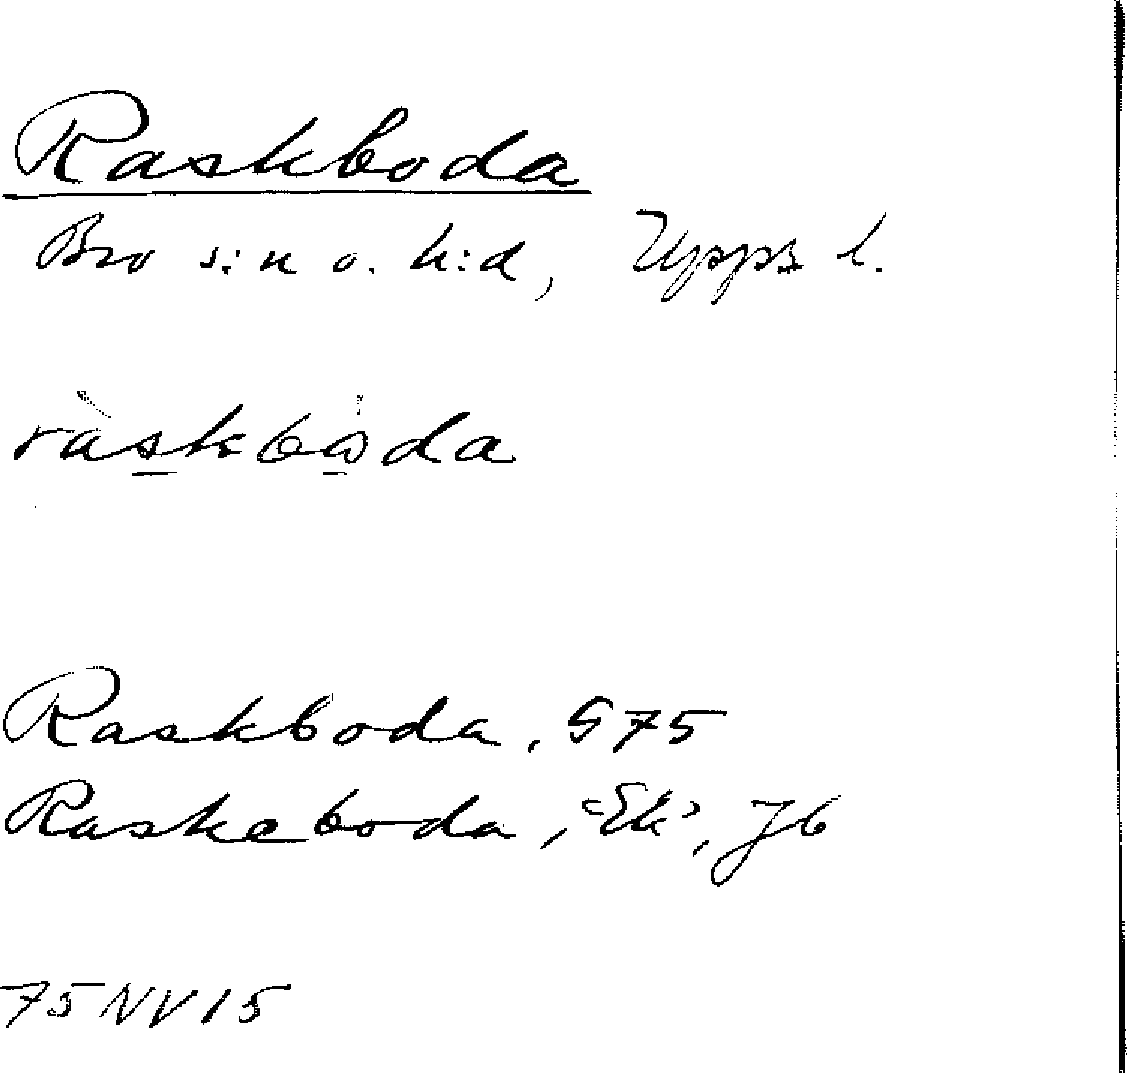 Raskboda
Bro s:n o. h:d, Upps l.
ràskbωda
Raskboda, G75
Raskeboda, "Ek", Jb
75NV15